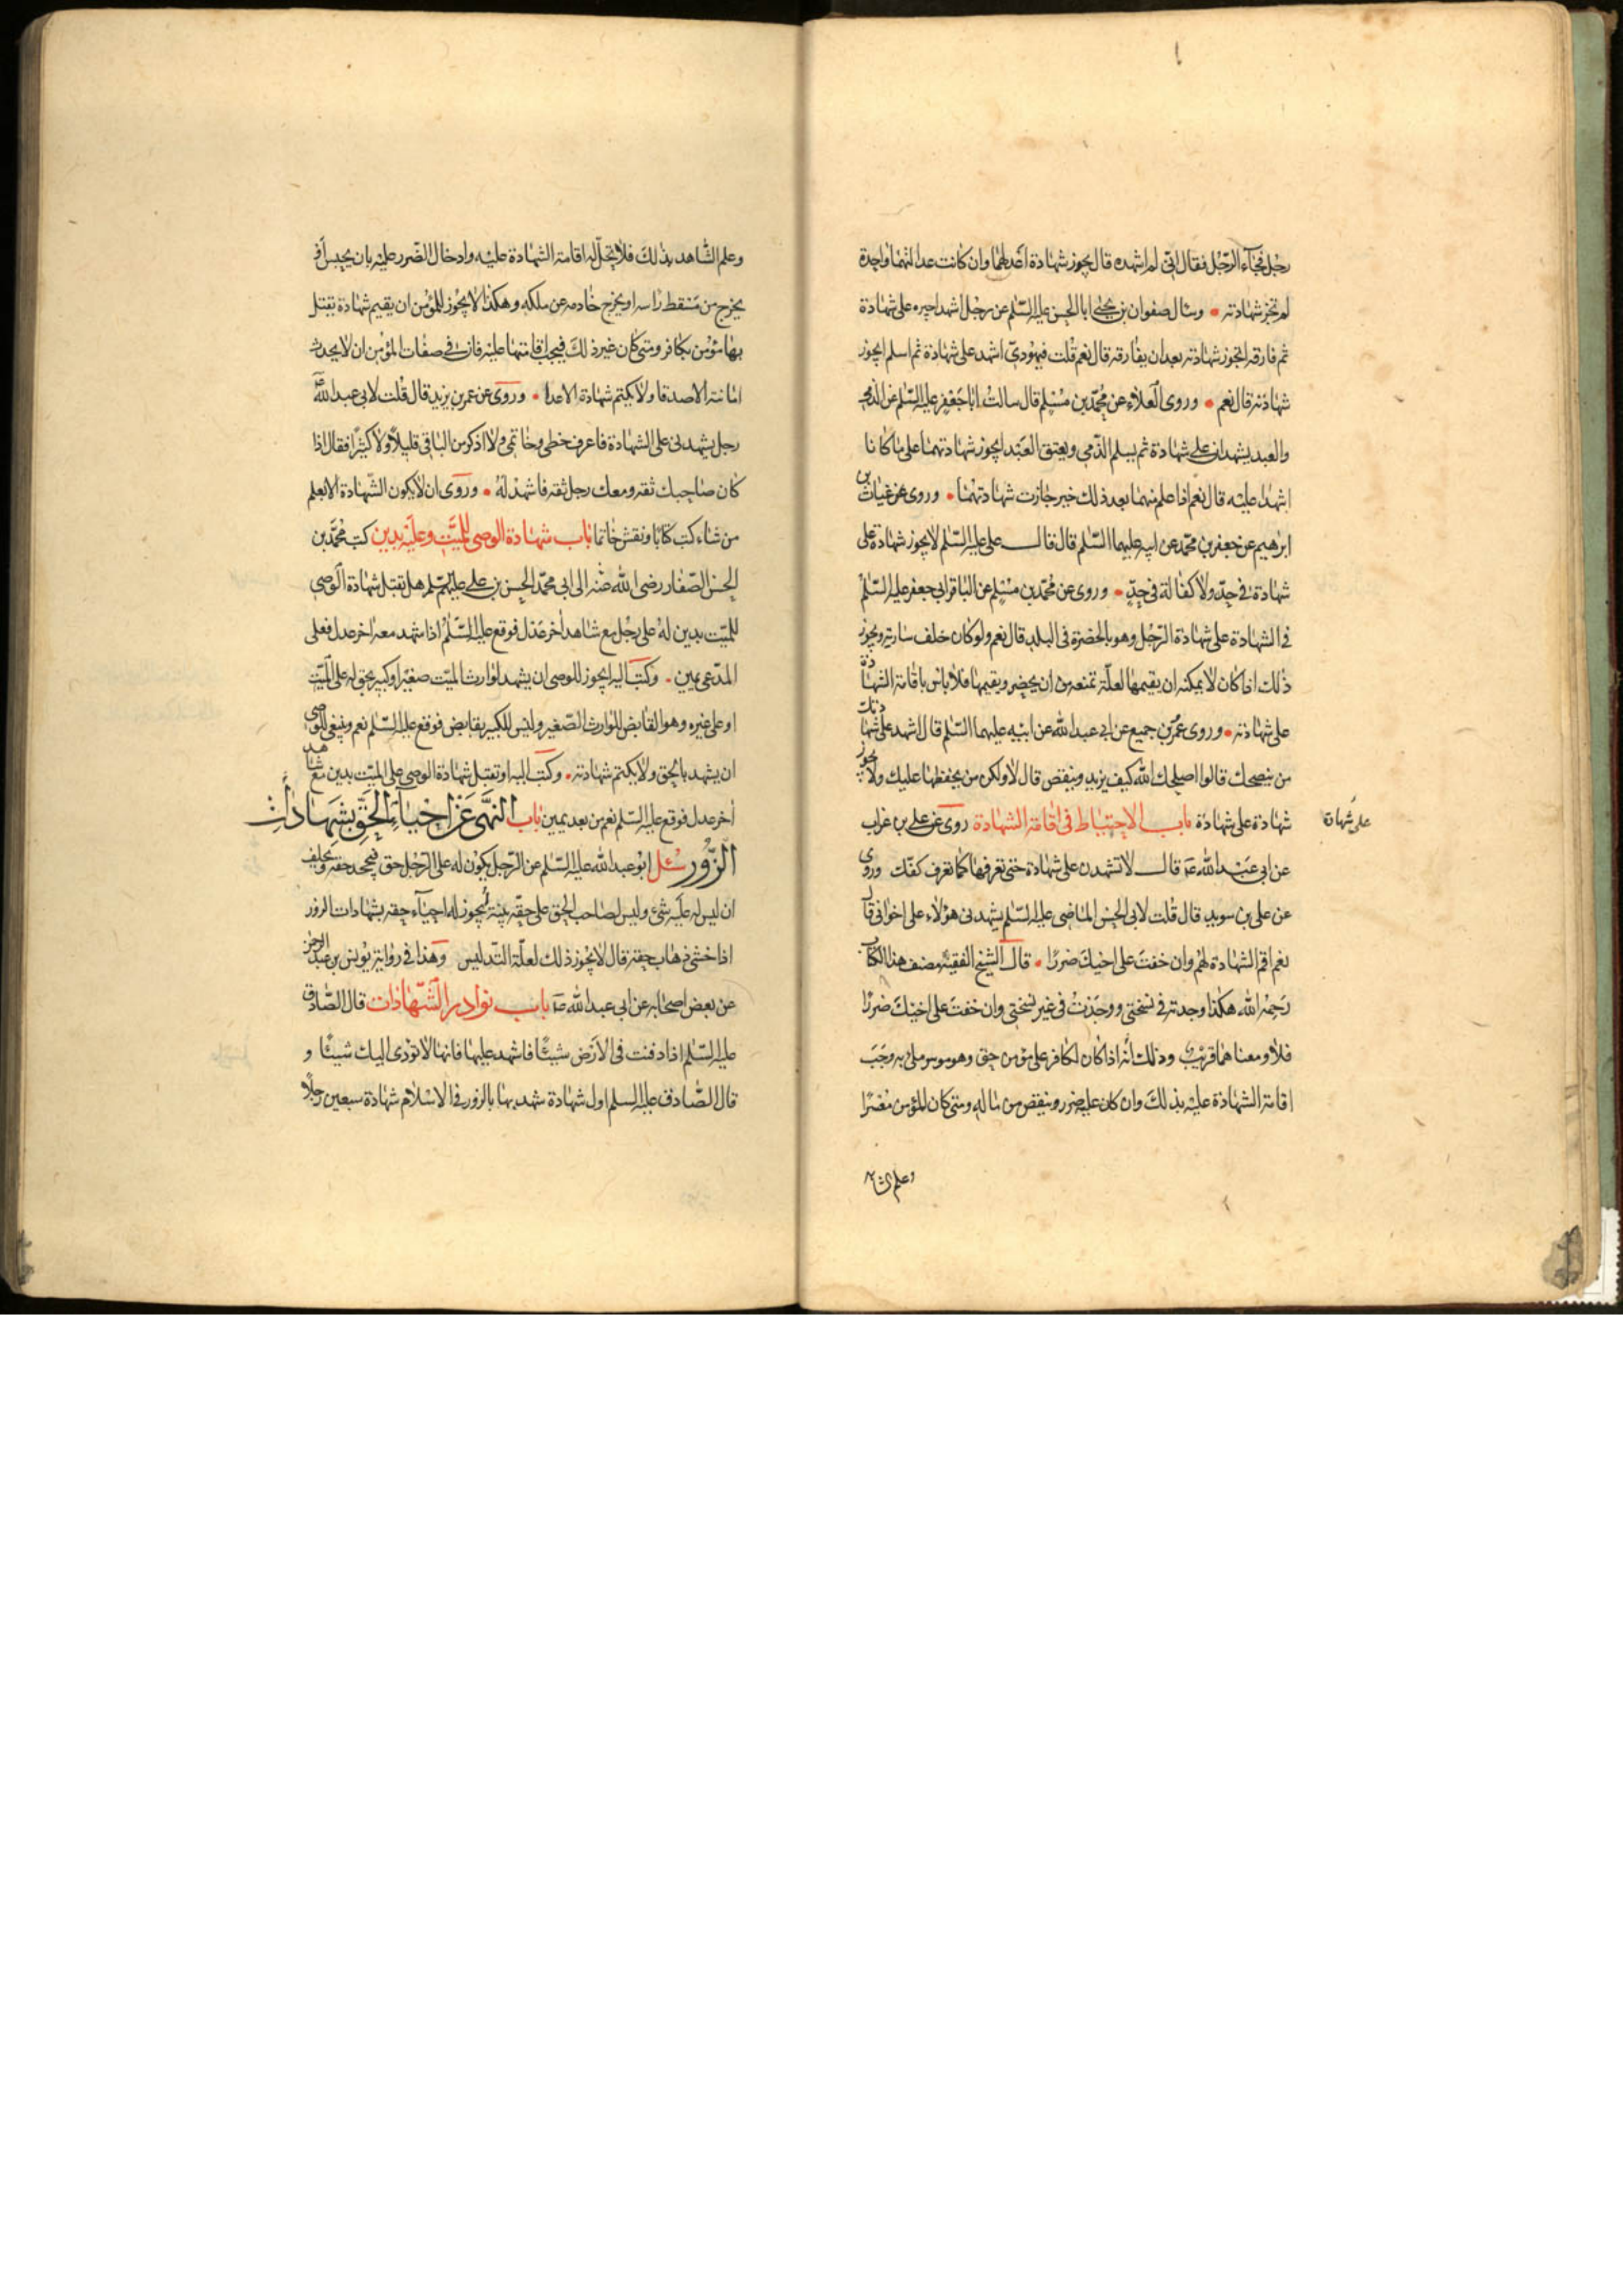 رجل فجاء الرجل فقال اني لم اشهده قال يجوز شهادة اعدلهما وان كانت عدالتهما واحدة
لم تجز شهادته وسال صفوان بن يحيى ابا الحسن عليه السلم عن رجل اشهد اجيره على شهادة
ثم فارقه اتجوز شهادته بعد ان يفارقه قال نعم قلت فيهودي اشهد على شهادة ثم اسلم ايجوز
شهادته قال نعم وروى العلاء عن محمد بن مسلم قال سالت ابا جعفر عليه السلم عن الذمي
والعبد يشهدان على شهادة ثم يسلم الذمي ويعتق العبد ايجوز شهادتهما على ما كانا
اشهدا عليه قال نعم اذا علم منهما بعد ذلك خير جازت شهادتهما وروى عن غياث بن
ابرهيم عن جعفر بن محمد عن ابيه عليهما السلم قال قال على عليه السلم لا يجوز شهادة على
شهادة في حد ولا كفالة في حد وروى عن محمد بن مسلم عن الباقر ابي جعفر عليه السلم
في الشهادة على شهادة الرجل وهو بالحضرة في البلد قال نعم ولو كان خلف سارية ويجوز
ذلك اذا كان لا يمكنه ان يقيمها لعلة تمنعه من ان يحضر ويقيمها فلا باس باقامة الشهادة
على شهادته وروى عمرو بن جميع عن ابي عبد الله عن ابيه عليهما السلم قال اشهد على شهادتك
من ينصحك قالوا اصلحك الله كيف يزيد وينقص قال لا ولكن من يحفظها عليك ولا يجوز
شهادة على شهادة باب الاحتياط في اقامة الشهادة روى عن علي بن غراب
على شهادة
عن ابي عبد الله ع قال لا تشهدن على شهادة حتى تعرفها كما تعرف كفك وروى
عن على بن سويد قال قلت لابي الحسن الماضي عليه السلم يشهدني هؤلاء على اخواني قال
نعم اقم الشهادة لهم وان خفت على اخيك ضررا قال الشيخ الفقيه مصنف هذا الكتاب
رحمه الله هكذا وجدته في نسختي ووجدت في غير نسختي وان خفت على اخيك ضررا
فلا ومعناهما قريب وذلك انه اذا كان لكافر على مؤمن حق وهو موسر ملي به وجب
اقامة الشهادة عليه بذلك وان كان عليه ضرر وينقص من ماله ومتى كان المؤمن معسرا
وعلم الشا
وعلم الشاهد بذلك فلا يحل له اقامة الشهادة عليه وادخال الضرر عليه بان يحبس او
يخرج من مسقط راسه او يخرج خادمه عن ملكه وهكذا لا يجوز للمؤمن ان يقيم شهادة يقتل
بها مؤمن بكافر ومتى كان غير ذلك فيجب اقامتها عليه فان في صفات المؤمن ان لا يحدث
امانته الاصدقا ولا يكتم شهادة الاعدا وروى عن عمر بن يزيد قال قلت لابي عبد الله ع
رجل يشهدني على الشهادة فاعرف خطى وخاتمي ولا اذكر من الباقي قليلا ولا كثيرا فقال اذا
كان صاحبك ثقه ومعك رجل ثقه فاشهد له وروى ان لا يكون الشهادة الا بعلم
من شاء كتب كتابا ونقش خاتما باب شهادة الوصى للميت وعليه بدين كتب محمد بن
الحسن الصفار رضى الله عنه الى ابي محمد الحسن بن على عليهم السلم هل تقبل شهادة الوصي
للميت بدين له على رجل مع شاهد اخر عدل فوقع عليه السلم اذا شهد معه اخر عدل فعلى
المدعى يمين وكتب اليه ايجوز للوصى ان يشهد لوارث الميت صغيرا وكبير بحق له على الميت
او على غيره وهو القابض للوارث الصغير وليس للكبير بقابض فوقع عليه السلم نعم وينبغي للوصي
ان يشهد بالحق ولا يكتم شهادته وكتب اليه او تقبل شهادة الوصي على الميت بدين مع شاهد
اخر عدل فوقع عليه السلم نعم من بعد يمين باب النهى عن احياء الحق بشهادات
الزور سئل ابو عبد الله عليه السلم عن الرجل يكون له على الرجل حق فيجحد حقه ويحلف
ان ليس له عليه شئ وليس لصاحب الحق على حقه بينة ايجوز له احياء حقه بشهادات الزور
اذا خشى ذهاب حقه قال لا يجوز ذلك لعلة التدليس وهذا في رواية يونس بن عبد الرحمن
عن بعض اصحابه عن ابي عبد الله ع باب نوادر الشهادات قال الصادق
عليه السلم اذا دفنت في الارض شيئا فاشهد عليها فانها لا تؤدى اليك شيئا و
قال الصادق عليه السلم اول شهادة شهد بها بالزور في الاسلام شهادة سبعين رجلا